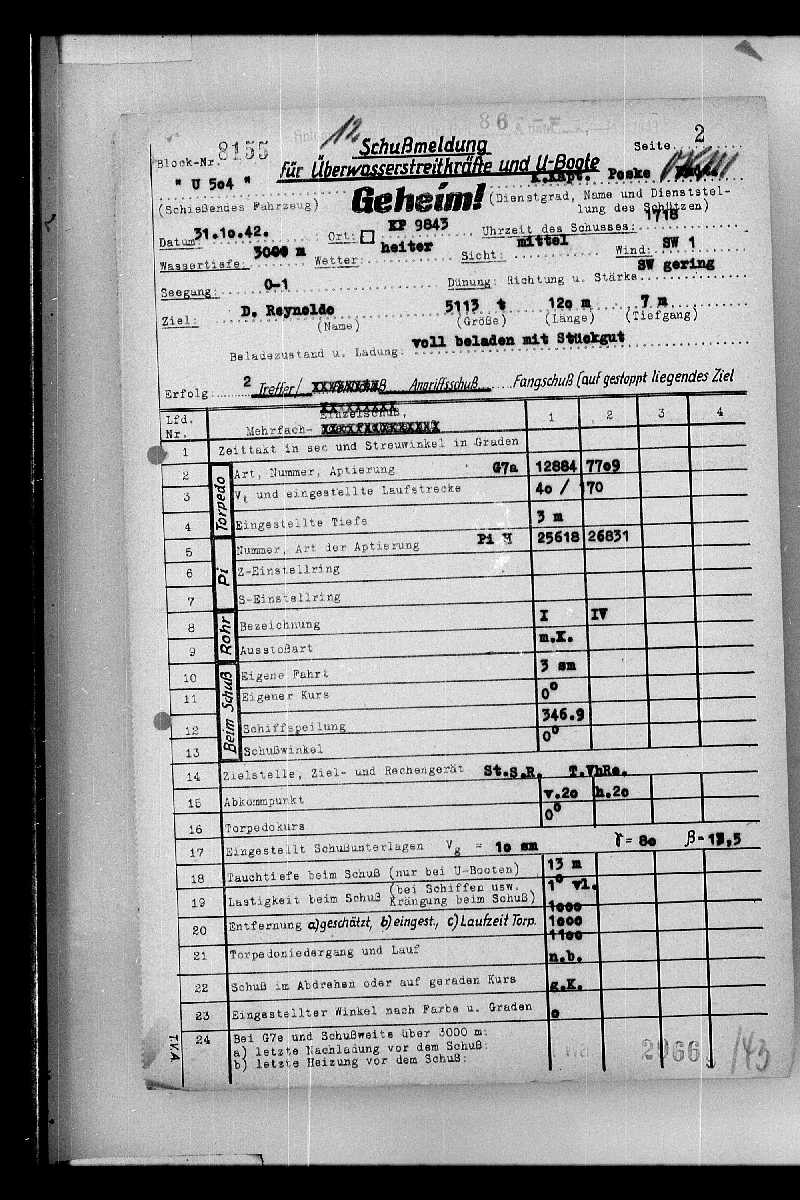 12.
Schußmeldung
Seite 2
Block-Nr. 8155
für Überwasserstreitkräfte und U-Boote
" U 504 "
K.Kpt. Poske
Geheim!
(Schießendes Fahrzeug)
(Dienstgrad, Name und Dienststel-
lung des Schützen)
Datum 31.10.42. Ort: KP 9843 Uhrzeit des Schusses: 1718
Wassertiefe: 3000 m Wetter: heiter Sicht: mittel Wind: SW 1
Seegang: 0-1 Dünung: Richtung u. Stärke SW gering
Ziel: D. Reynolds 5113 t 120 m 7 m
(Name) (Größe) (Länge) (Tiefgang)
Beladezustand u. Ladung: voll beladen mit Stückgut
Erfolg: 2 Treffer/ Angriffsschuß Fangschuß (auf gestoppt liegendes Ziel
Lfd. Nr. Einzelschuß, Mehrfach- 1 2 3 4
1 Zeittakt in sec und Streuwinkel in Graden
Torpedo
2 Art, Nummer, Aptierung G7a 12884 7709
3 Vt und eingestellte Laufstrecke 40 / 170
4 Eingestellte Tiefe 3 m
Pi
5 Nummer, Art der Aptierung Pi H 25618 26831
6 Z-Einstellring
7 S-Einstellring
Rohr
8 Bezeichnung I IV
9 Ausstoßart m.K.
Beim Schuß
10 Eigene Fahrt 3 sm
11 Eigener Kurs 0°
12 Schiffspeilung 346.9
13 Schußwinkel 0°
14 Zielstelle, Ziel- und Rechengerät St.S.R. T.VhRe.
15 Abkommpunkt v.20 h.20
16 Torpedokurs 0°
17 Eingestellt Schußunterlagen Vg = 10 sm γ = 80 β = 13,5
18 Tauchtiefe beim Schuß (nur bei U-Booten) 13 m
19 Lastigkeit beim Schuß (bei Schiffen usw. Krängung beim Schuß) 1° vl.
20 Entfernung a)geschätzt, b)eingest., c) Laufzeit Torp. 1000 1000 1100
21 Torpedoniedergang und Lauf n.b.
22 Schuß im Abdrehen oder auf geraden Kurs g.K.
23 Eingestellter Winkel nach Farbe u. Graden 0
24 Bei G7e und Schußweite über 3000 m:
a) letzte Nachladung vor dem Schuß:
b) letzte Heizung vor dem Schuß:
T.V.A.
2966 /43